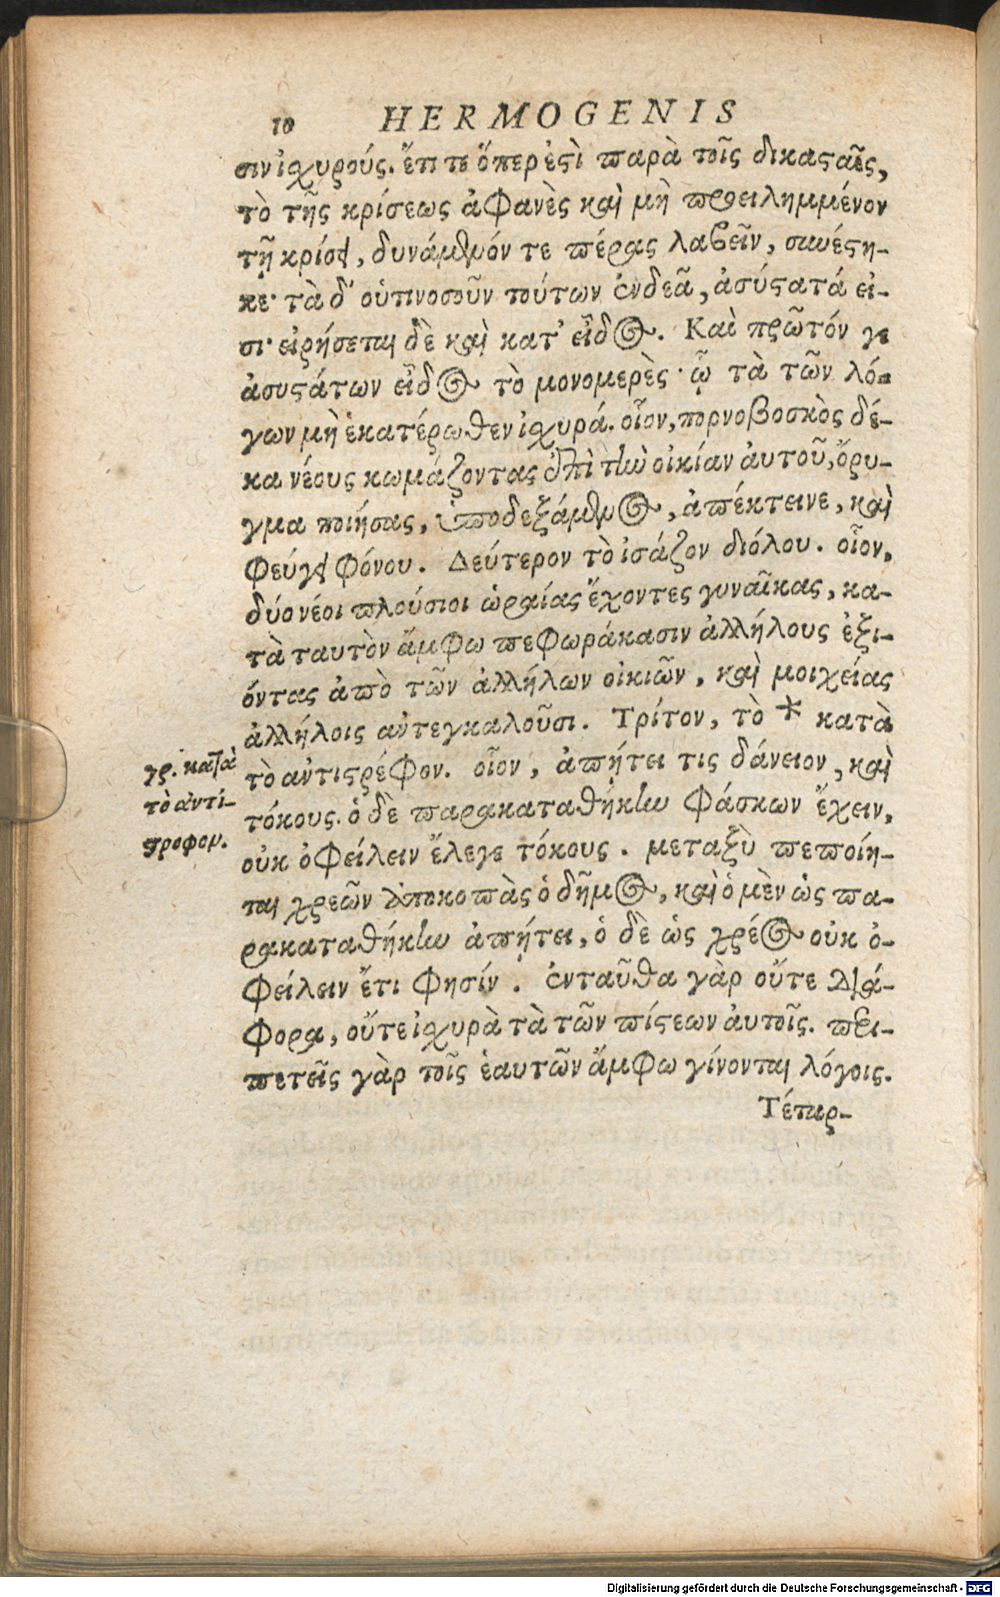 10 HERMOGENIS
σιν ἰσχυρούς. ἔτι τε ὅπερ ἐστὶ παρὰ τοῖς δικασταῖς,
τὸ τῆς κρίσεως ἀφανὲς καὶ μὴ προειλημμένον
τῇ κρίσει, δυνάμενόν τε πέρας λαβεῖν, συνέστη-
κε· τὰ δ' οὑτινοσοῦν τούτων ἐνδεᾶ, ἀσύστατά εἰ-
σι· εἰρήσεται δὲ καὶ κατ' εἶδος. Καὶ πρῶτόν γε
ἀσυστάτων εἶδος τὸ μονομερὲς· ᾧ τὰ τῶν λό-
γων μὴ ἑκατέρωθεν ἰσχυρά. οἷον, πορνοβοσκὸς δέ-
κα νέους κωμάζοντας ἐπὶ τὴν οἰκίαν αὐτοῦ, ὄρυ-
γμα ποιήσας, ὑποδεξάμενος, ἀπέκτεινε, καὶ
φεύγει φόνου. Δεύτερον τὸ ἰσάζον διόλου. οἷον,
δύο νέοι πλούσιοι ὡραίας ἔχοντες γυναῖκας, κα-
τὰ ταυτὸν ἄμφω πεφωράκασιν ἀλλήλους ἐξι-
όντας ἀπὸ τῶν ἀλλήλων οἰκιῶν, καὶ μοιχείας
ἀλλήλοις ἀντεγκαλοῦσι. Τρίτον, τὸ * κατὰ
τὸ ἀντιστρέφον. οἷον, ἀπῄτει τις δάνειον, καὶ
τόκους. ὁ δὲ παρακαταθήκην φάσκων ἔχειν,
οὐκ ὀφείλειν ἔλεγε τόκους. μεταξὺ πεποίη-
ται χρεῶν ἀποκοπὰς ὁ δῆμος, καὶ ὁ μὲν ὡς πα-
ρακαταθήκην ἀπῄτει, ὁ δὲ ὡς χρέος οὐκ ὀ-
φείλειν ἔτι φησίν. ἐνταῦθα γὰρ οὔτε διά-
φορα, οὔτε ἰσχυρὰ τὰ τῶν πίστεων αὐτοῖς. περι-
πετεῖς γὰρ τοῖς ἑαυτῶν ἄμφω γίνονται λόγοις.
Τέταρ-
γρ. κατὰ
τὸ ἀντί-
στροφον.
Digitalisierung gefördert durch die Deutsche Forschungsgemeinschaft - DFG